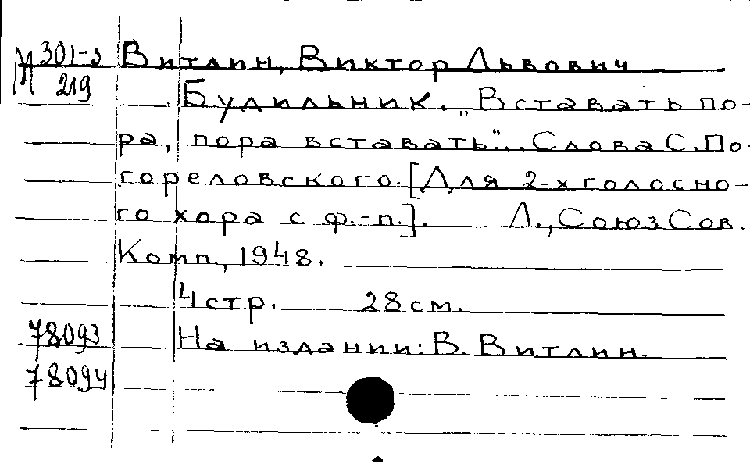 М 301-3 Витлин, Виктор Львович
219 Будильник. „Вставать по-
ра, пора вставать". Слова С. По-
гореловского. [Для 2-х голосно-
го хора с ф.-п.]. Л., Союз Сов.
Комп., 1948.
4 стр. 28 см.
78093 На издании: В. Витлин.
78094